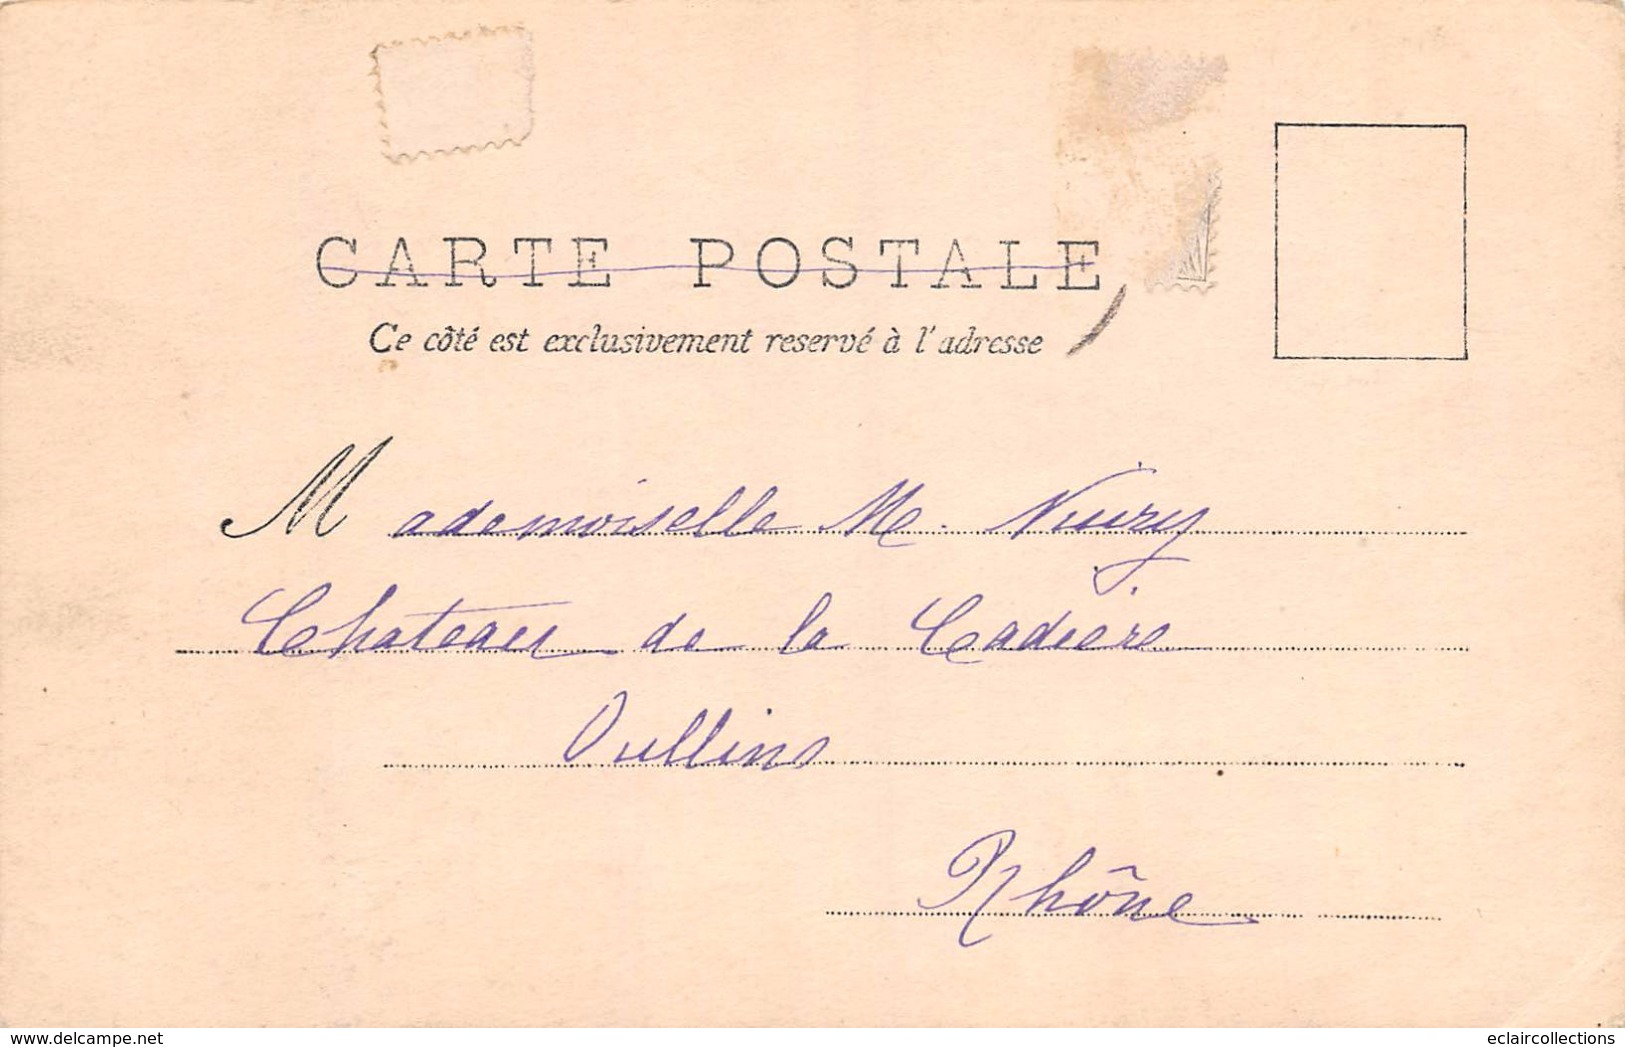 CARTE POSTALE
Ce côté est exclusivement reservé à l'adresse
Mademoiselle M.
Chateau de la Cadière
Oullins
Rhône
delcampe.net
eclaircollections